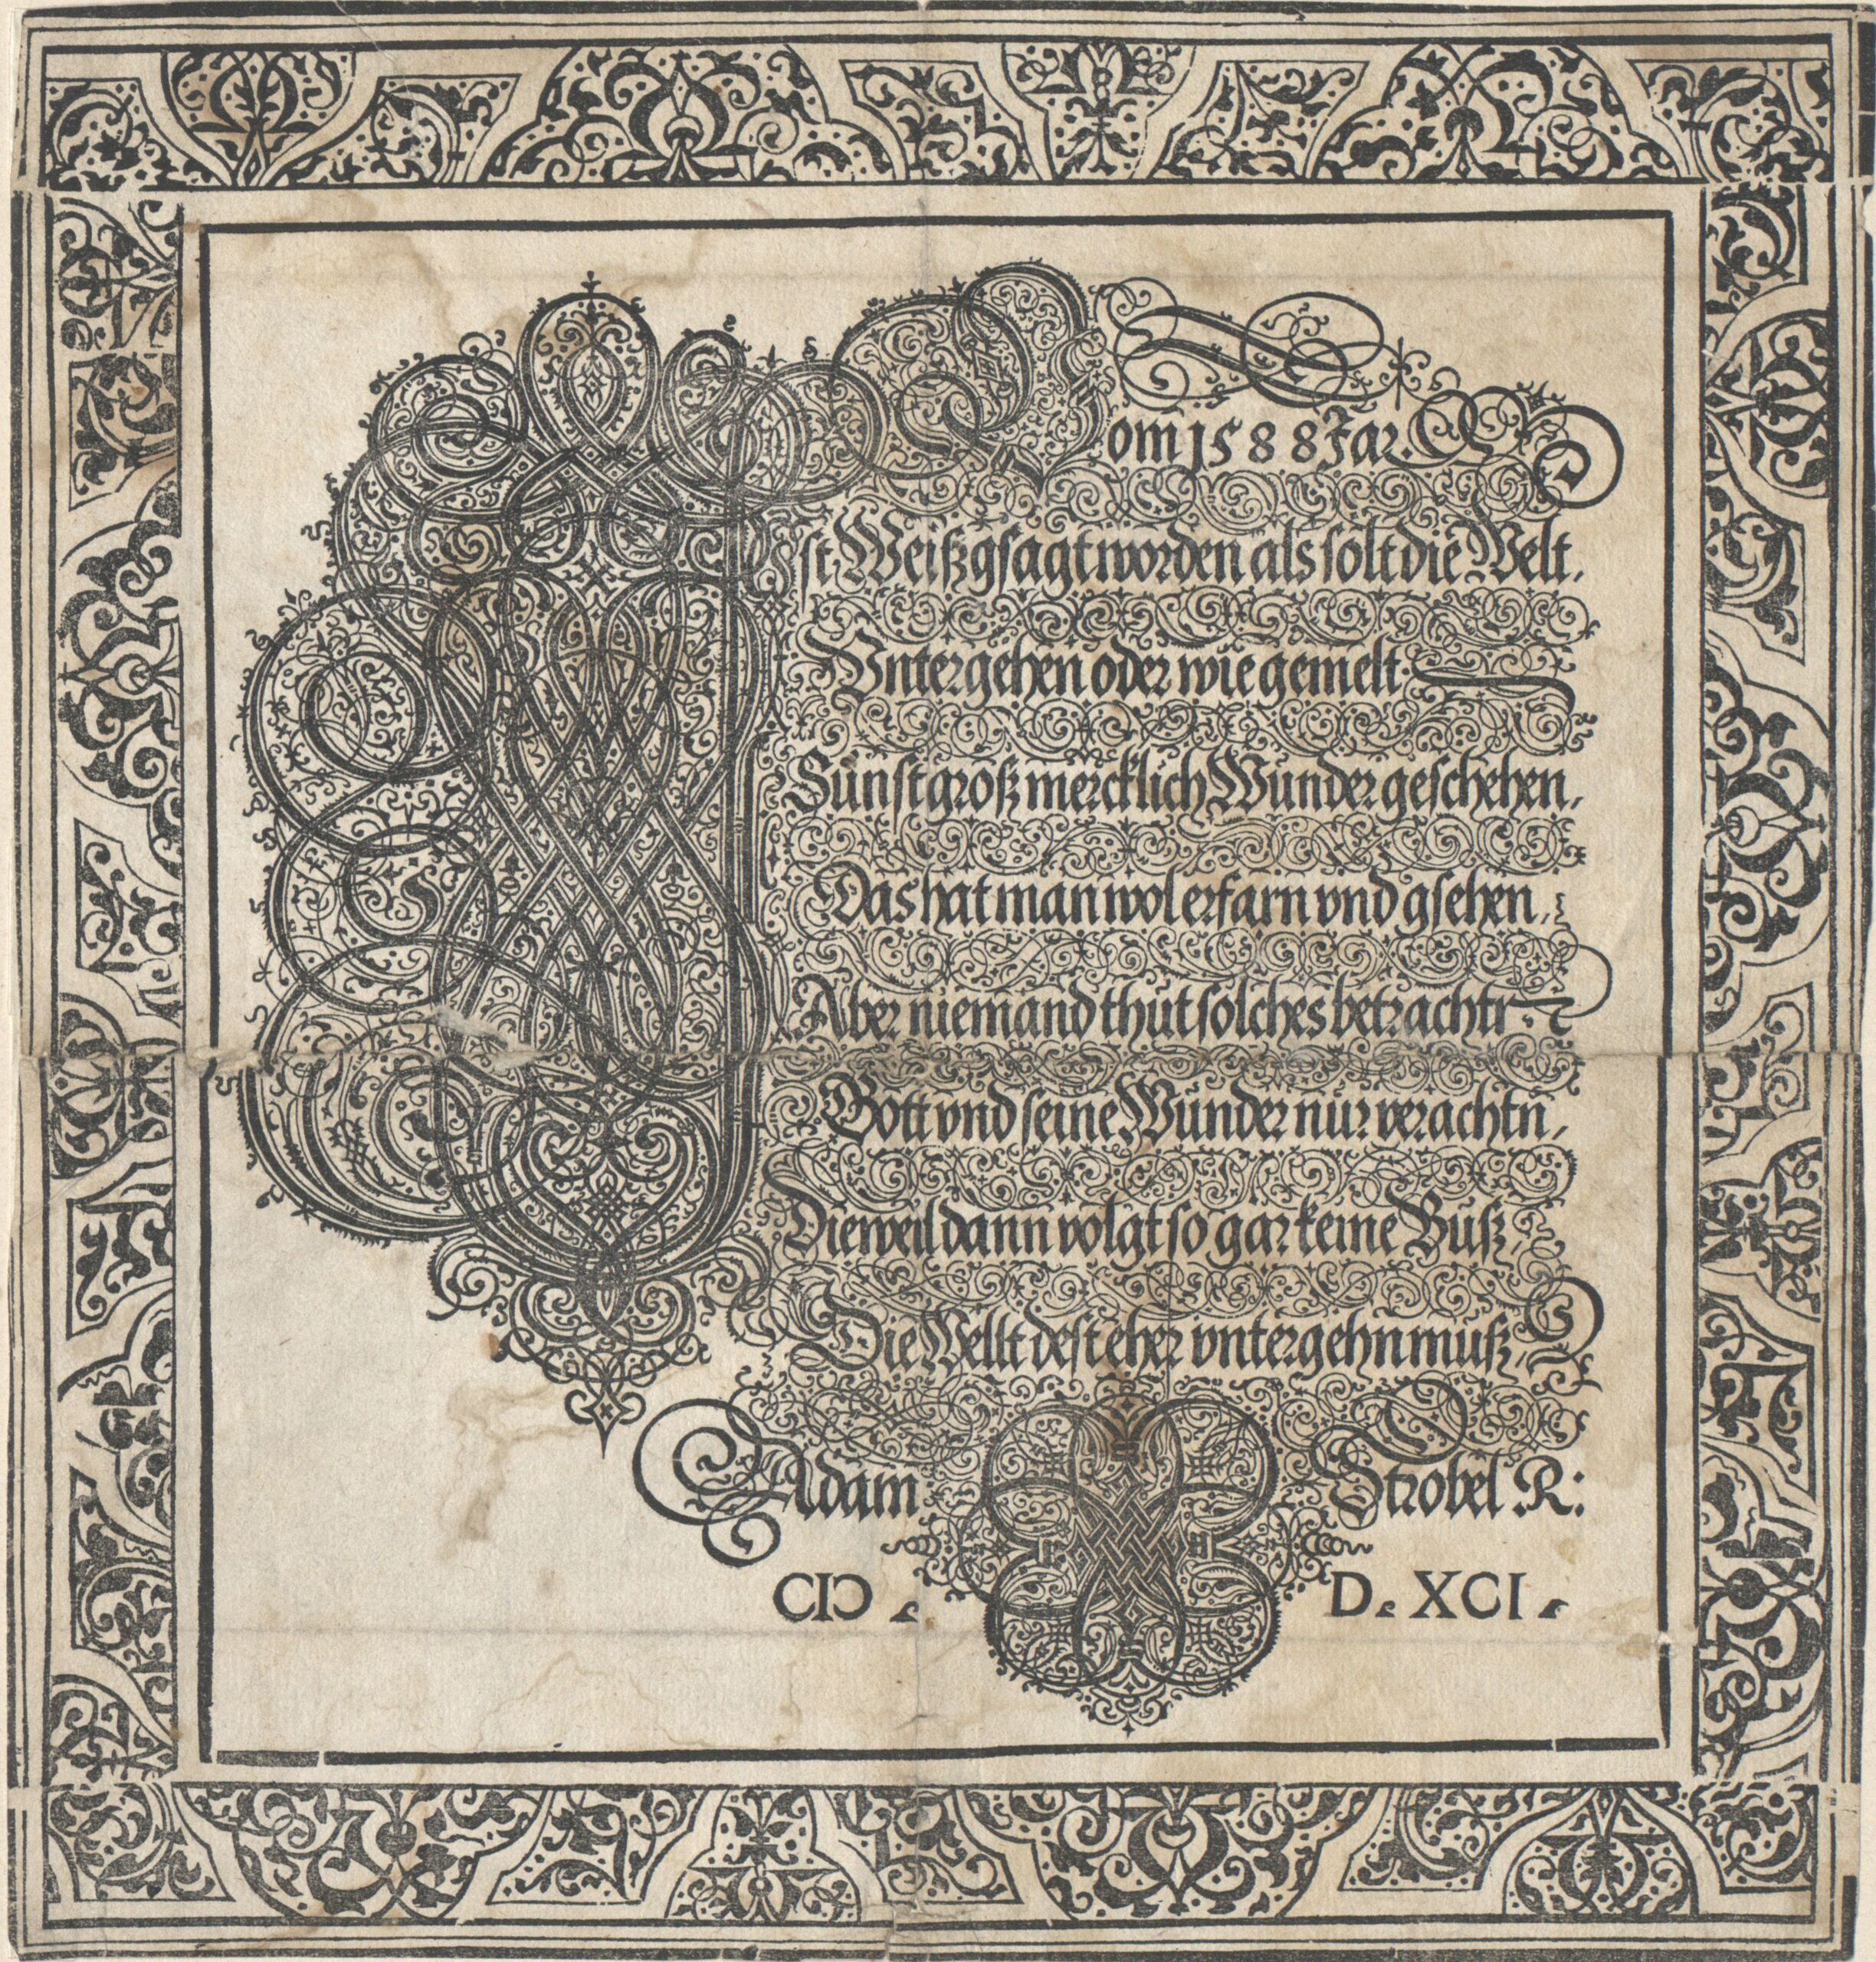 Vom 1588 Jar.
Ist Weißgsagt worden als solt die Welt.
Vntergehen oder wie gemelt
Sunst groß mercklich Wunder geschehen.
Das hat man wol erfarn vnd gsehen.
Aber niemand thut solches betrachtn.
Gott vnd seine Wunder nur verachtn.
Dieweil dann volgt so gar keine Buß
Die Wellt dest eher vntergehn muß.
Adam Strobel R:
CIƆ . D. XCI.